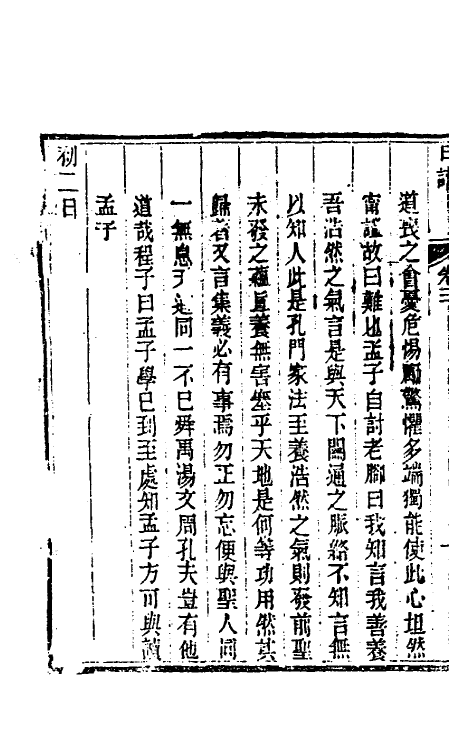 日譜
卷三
道喪之會憂危惕勵驚懼多端獨能使此心坦然
甯謐故曰難也孟子自討老腳曰我知言我善養
吾浩然之氣言是與天下關通之脈絡不知言無
以知人此是孔門家法至養浩然之氣則發前聖
未發之蘊直養無害塞乎天地是何等功用然其
歸著又言集義必有事焉勿正勿忘便與聖人同
一無息乃是同一不巳舜禹湯文周孔夫豈有他
道哉程子曰孟子學巳到至處知孟子方可與讀
孟子
初二日